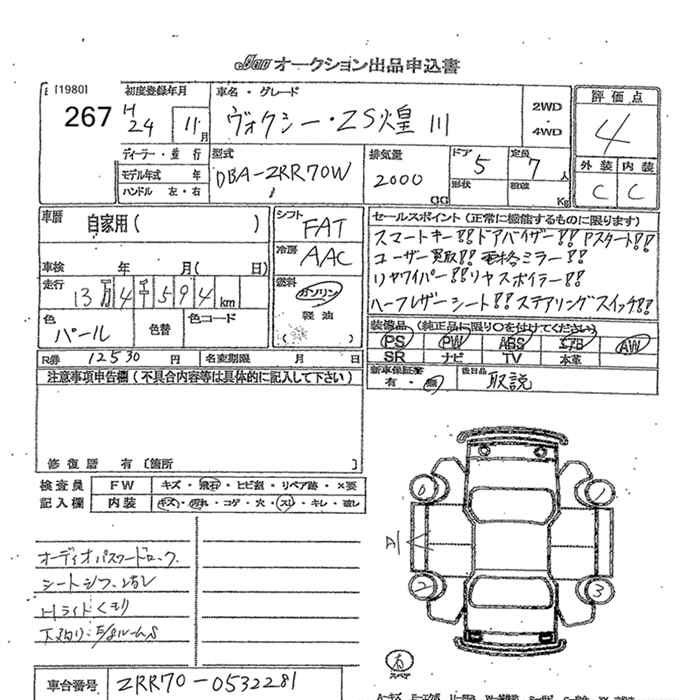 オークション出品申込書
[1980]
267
初度登録年月
H24 11月
車名・グレード
ヴォクシー・ZS煌III
2WD
・
4WD
評価点
4
外装 内装
C C
ディーラー・並行
モデル年式 年
ハンドル 左・右
型式
DBA-ZRR70W
排気量
2000
CC
ドア 5
形状
定員 7人
積載 Kg
車歴 自家用( )
車検 年 月( 日)
走行 13万4千594km
色 パール
色替
色コード
シフト FAT
冷房 AAC
燃料 ガソリン
軽油
( )
セールスポイント(正常に機能するものに限ります)
スマートキー!! ドアバイザー!! Pスタート!!
ユーザー買取!! 電格ミラー!!
リヤワイパー!! リヤスポイラー!!
ハーフレザーシート!! ステアリングスイッチ!!
装備品(純正品に限り○を付けてください)
PS PW ABS エアB AW
SR ナビ TV 本革
新車保証書 有・無
後日品 取説
R券 12530円
名変期限 月 日
注意事項申告欄(不具合内容等は具体的に記入して下さい)
修復歴 有〔箇所 〕
検査員 FW キズ・飛石・ヒビ割・リペア跡・×要
記入欄 内装 キズ・汚れ・コゲ・穴・スレ・キレ・破レ
オーディオパスワードロック
シートシワ・汚レ
Hライトくもり
車台番号 ZRR70-0532281
スペア